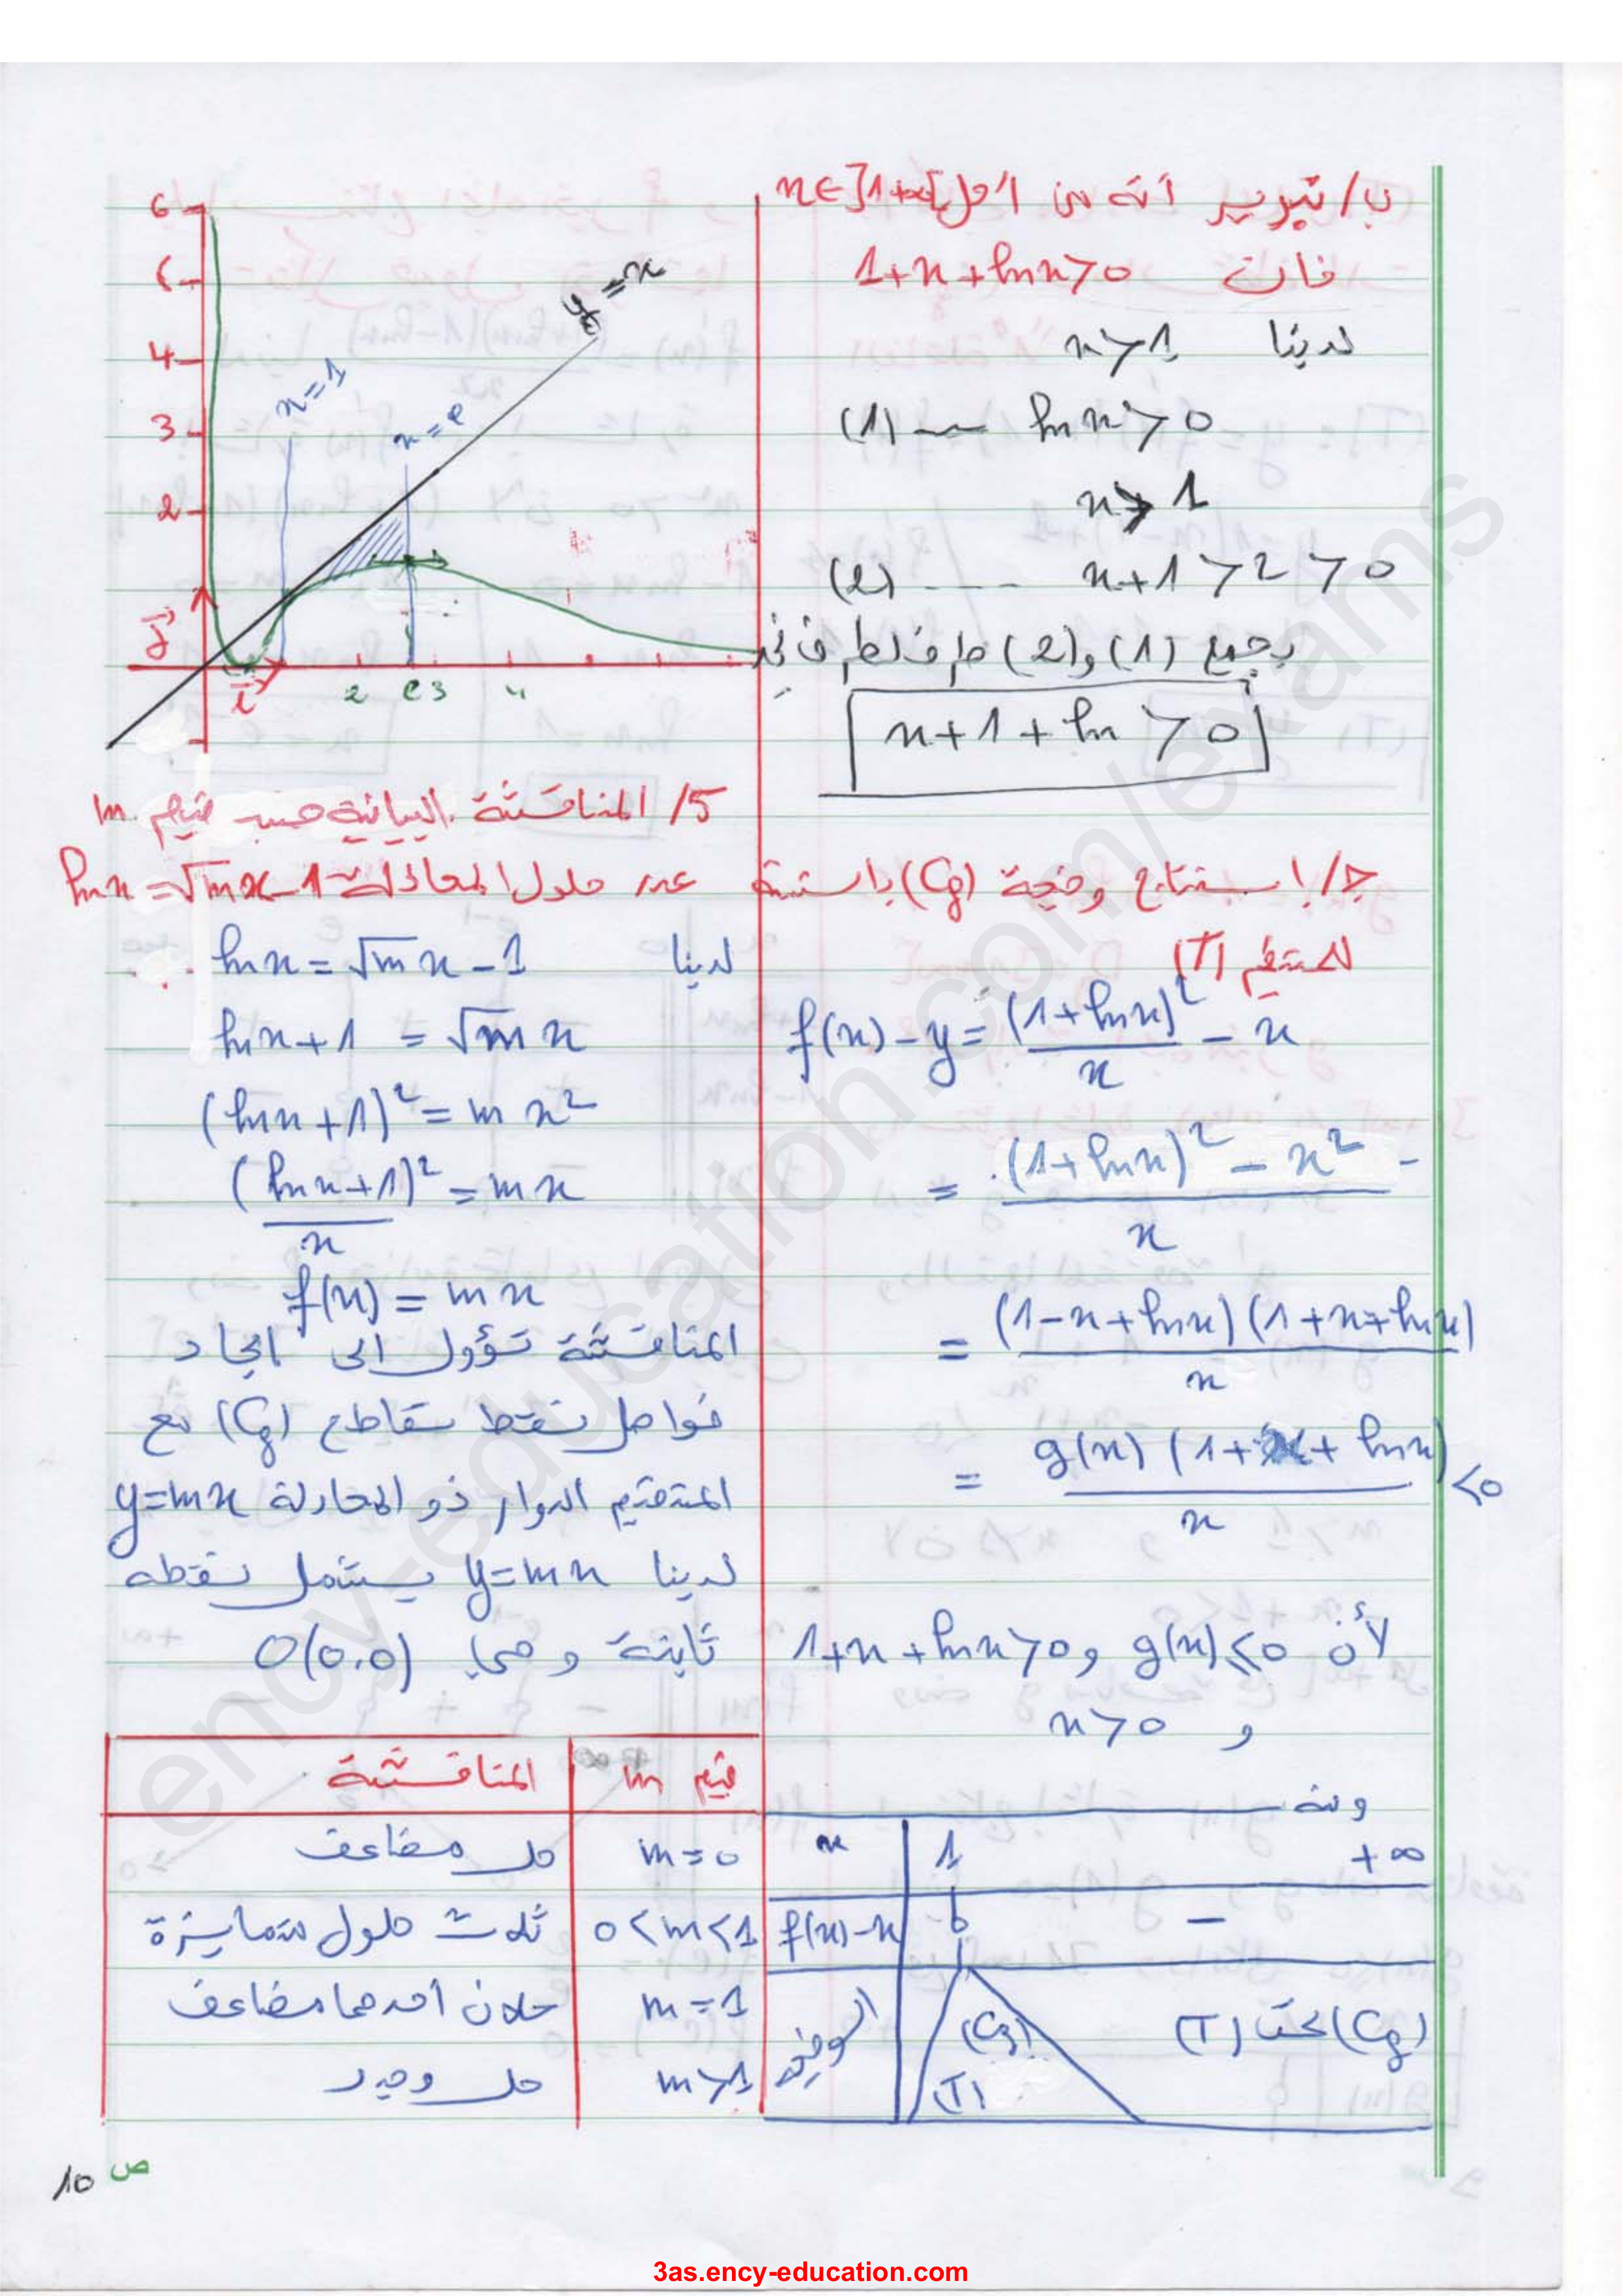 ب/ تبرير أنه من أجل x∈]1+∞[
فإن 1+x+lnx>0
لدينا x>1
lnx>0 --- (1)
x>1
x+1>2>0 --- (2)
بجمع (1) و(2) طرف لطرف نجد
x+1+ln>0
ج/ استنتاج وضعية (Cf) بالنسبة
للمستقيم (T)
f(x)-y=(1+lnx)²/x - x
= (1+lnx)²-x²/x
= (1-x+lnx)(1+x+lnx)/x
= g(x)(1+x+lnx)/x <0
لأن g(x)≤0 و 1+x+lnx>0
و x>0
ومنه
x 1 +∞
f(x)-x 0 -
الوضعية (Cf) (T) (Cf) تحت (T)
6
5
4
3
2
y=x
x=1
x=e
j
i
2 e 3 4
5/ المناقشة البيانية حسب قيم m
عدد حلول المعادلة lnx=√mx-1
لدينا lnx=√mx-1
lnx+1=√mx
(lnx+1)²=mx²
(lnx+1)²/x=mx
f(x)=mx
المناقشة تؤول الى ايجاد
فواصل نقط تقاطع (Cf) مع
المستقيم الدوار ذو المعادلة y=mx
لدينا y=mx يشمل نقطة
ثابتة وهي O(0.0)
قيم m المناقشة
m=0 حل مضاعف
0<m<1 ثلاث حلول متمايزة
m=1 حلان أحدهما مضاعف
m>1 حل وحيد
ص 10
ency-education.com/exams
3as.ency-education.com